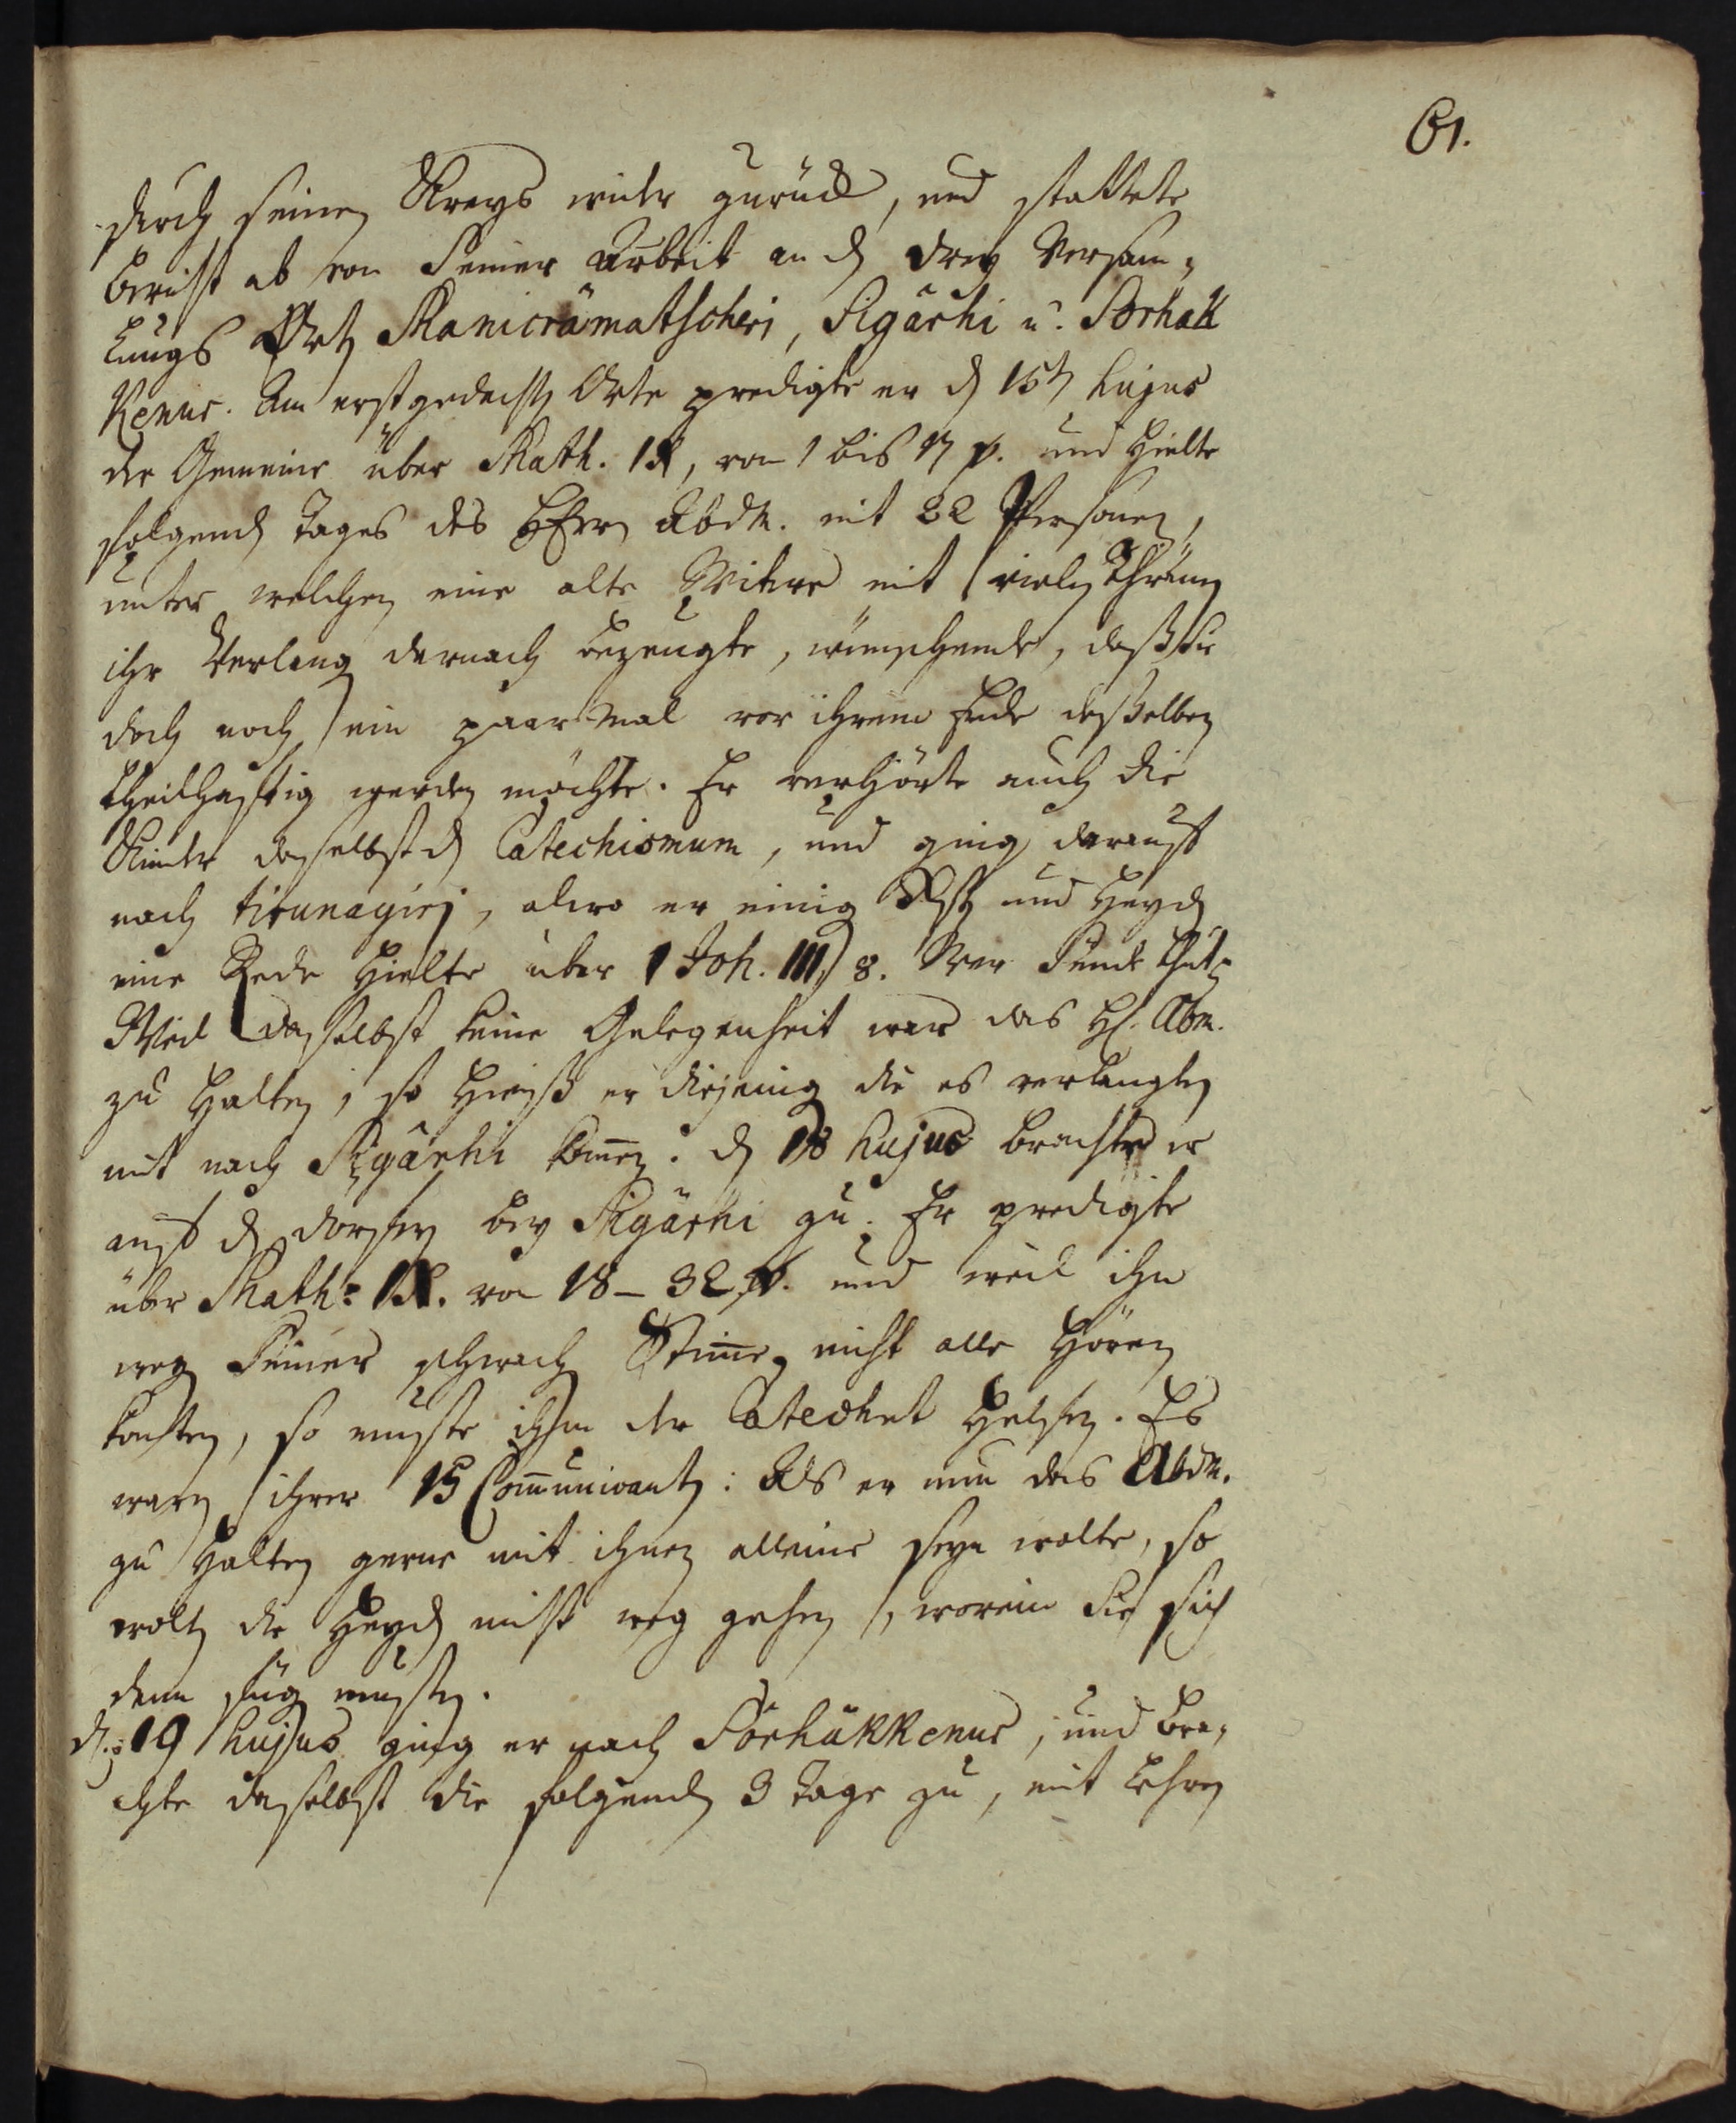 61.
durch seinen Kreys wieder zurück, und stattete
bericht ab von Seiner Arbeit an d. drey Versam-
lungs Orten Manicrämatscheri, Sigârhi u. Sorhak
Kenur. Am erst gedachten Orte predigte er d 15ten hujus
der Gemeine über Math. IX, von 1 bis 17 v. und hielte
folgenden Tages das HErrn Abdm. mit 22 Personen,
unter welchen eine alte Witwe mit vielen Thränen
ihr Verlangen darnach bezeugte, wünschende, daß sie
doch noch ein paar mal vor ihrem Ende desselben
theilhafftig werden möchte. Er verhörte auch die
Kinder daselbst d Catechismum, und ging darauff
nach tirunagiri, alwo er einigen Xsten und Heyden
eine Rede hielte über 1 Joh. III, 8. Wer Sünde thut
Weil daselbst keine Gelegenheit war das Hl. Abm.
zu halten, so hieß er diejenigen die es verlangten
mit nach Sigârhi komen. d 18 hujus brachte er
auf d dorfen bey Sigärhi zu. Er predigte
über Math: IX. von 18-32 v. und weil ihn
wegen Seiner schwachen Stime nicht alle hören
konten, so muste ihm der Catechet helfen. Es
waren ihrer 15 Comunicanten: Als er nun das Abdm.
zu halten gerne mit ihnen alleine seyn wolte, so
wolten die Heyden nicht weg gehen, worein sie sich
denn fügen musten.
d. 19 hujus ging er nach Sorhäkkenur, und bra-
chte daselbst die folgenden 3 Tage zu, mit Lehren